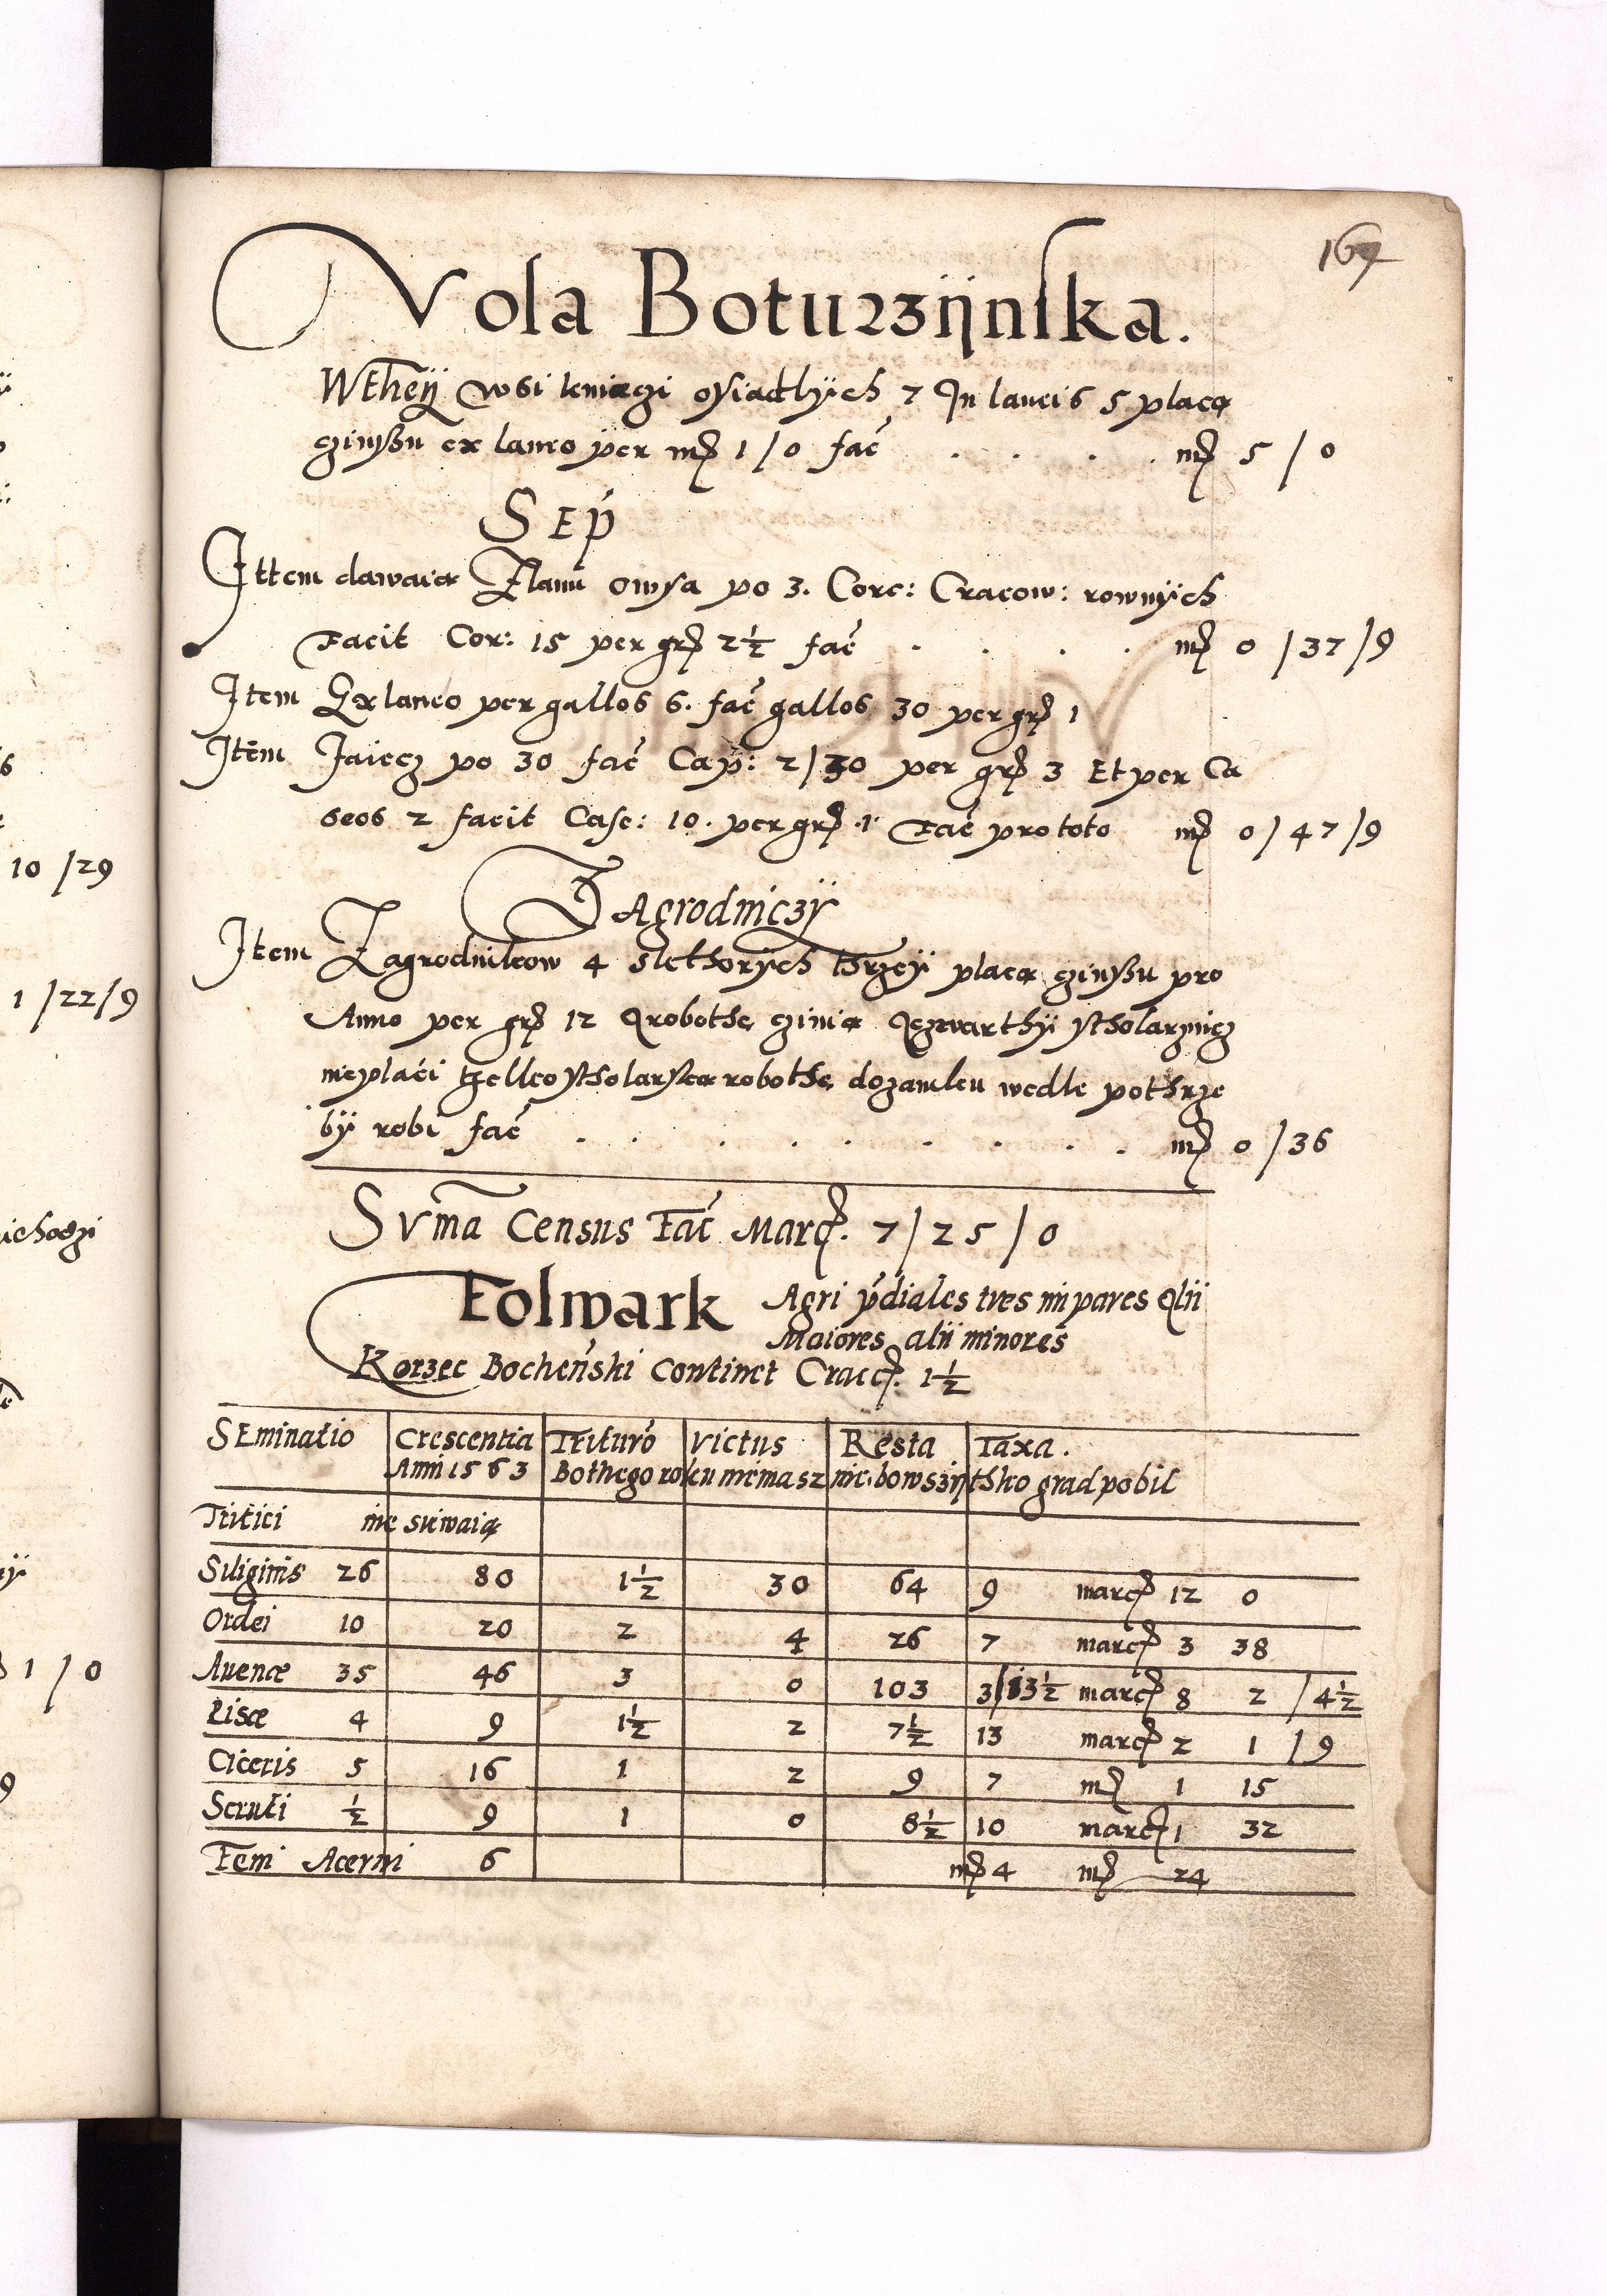 167
Vola Boturzÿnska.
WEheÿ wsi kmieczi osiadlÿch 7 Jn laneis 5 placą
czinßu ex laneo per mr̃ 1/0 fac̃ . . . . mr̃ 5/0
SEp
Jttem dawaią Zlanu owsa po 3. Corc: Cracow: rownÿch
Facit Cor: 15 per gr̃ 2½ fac̃ . . . . mr̃ 0/37/9
Jtem Exlaneo per gallos 6. fac̃ gallos 30 per gr̃ 1
Jtem Jaiecz po 30 fac̃ Cap: 2/30 per gr̃ 3 Et per Ca
seos 2 facit Case: 10. per gr̃ .1. Fac̃ pro toto mr̃ 0/47/9
ZAgrodniczÿ
Jtem Zagrodnikow 4 sktho​rÿch thrzeÿ placą czinßu pro
Anno per gr̃ 12 Qrobothę czinią Qczwarthÿ stholarznicz
nieplaći tzelko stholarską robothę dozamku wedle pothrze
bÿ robi fac̃ . . . . . . . . . mr̃ 0/36
SVm̃a Census Fac̃ Marc̃. 7/25/0
Folwark Agri p̃diales tres impares Qlii
Maiores alii minores
Korzec Bocheński Continet Cracc̃. 1½
SEminatio Crescentia Trituro victus Resta Taxa.
Anni 1563 Bothego roku niemasz nic. bowszÿthko grad pobil
Tritici nie siewaią
Siliginis 26 80 1½ 30 64 9 marc̃ 12 0
Ordei 10 20 2 4 26 7 marc̃ 3 38
Auenæ 35 46 3 0 103 3/13½ marc̃ 8 2 /4½
Pisæ 4 9 1½ 2 7½ 13 marc̃ 2 1 /9
Ciceris 5 16 1 2 9 7 mr̃ 1 15
Scruti ½ 9 1 0 8½ 10 marc̃ 1 32
Feni Acervi 6 mr̃ 4 mr̃ 24
10 /29
1 /22/9
1 / 0
9